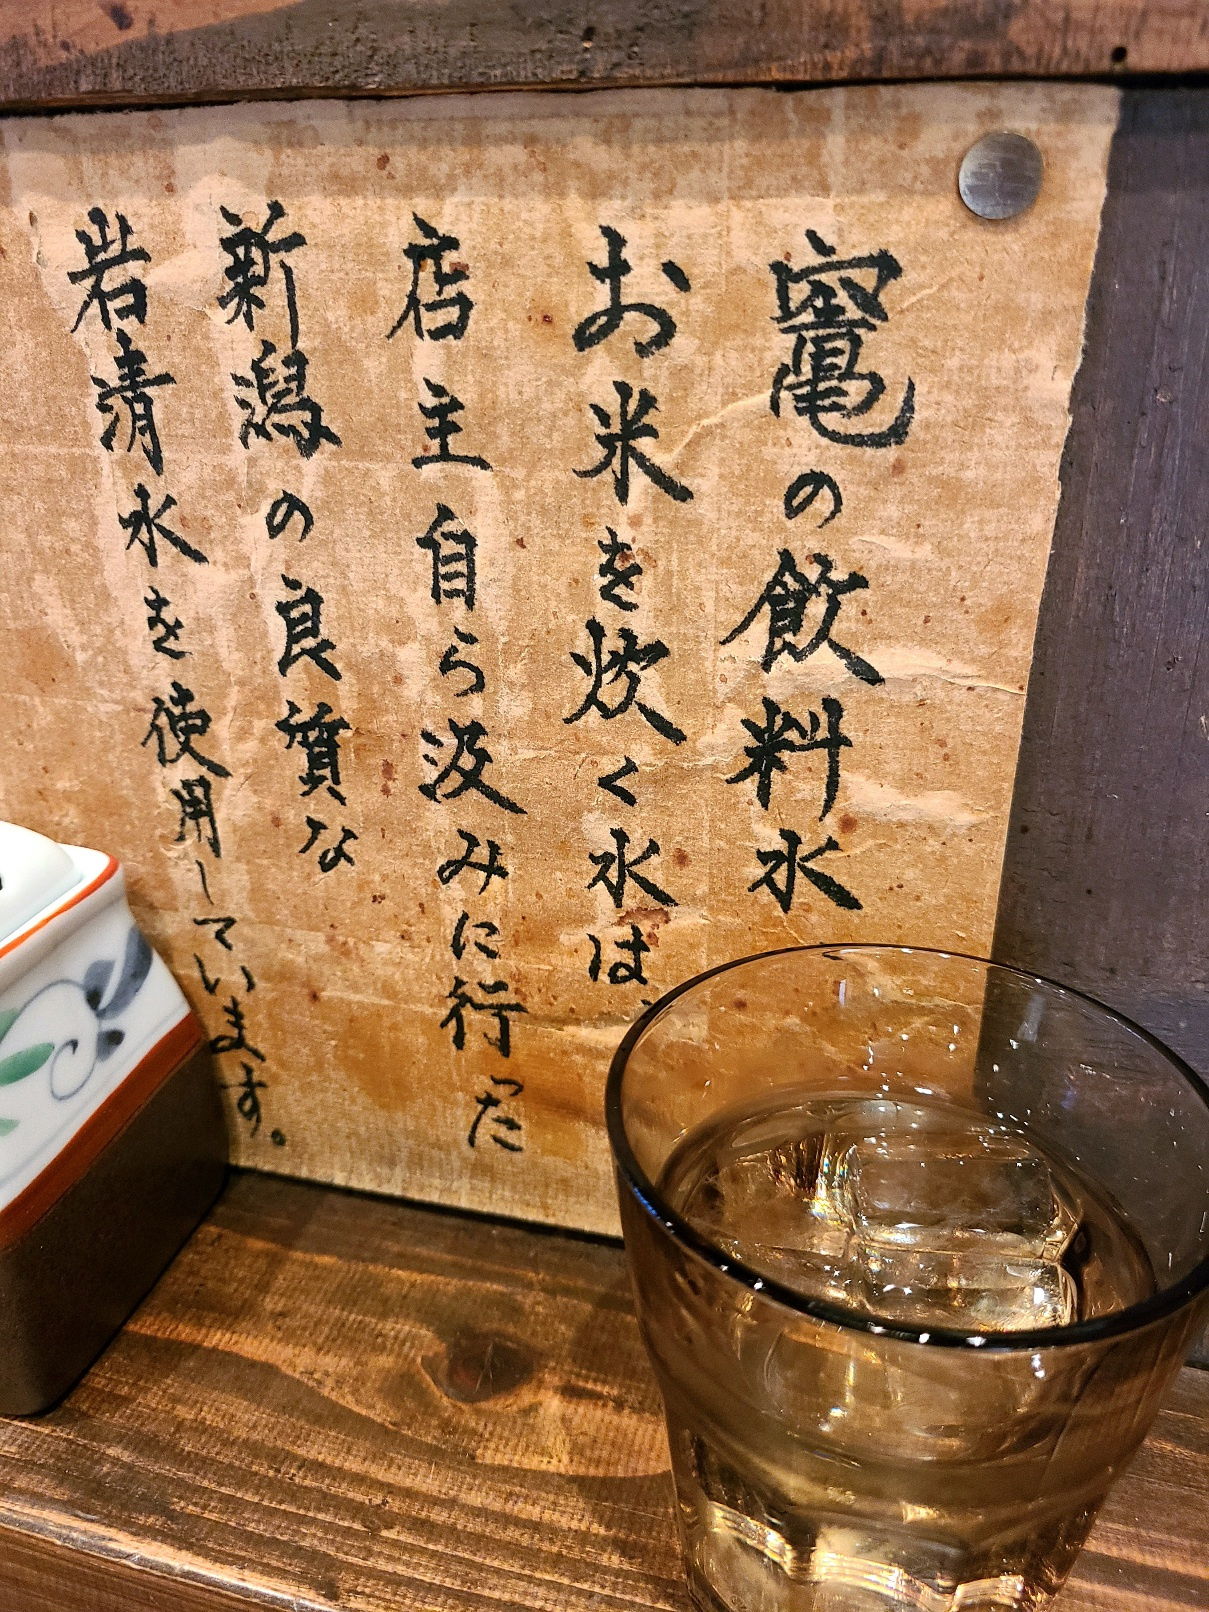 竈の飲料水
お米を炊く水は、
店主自ら汲みに行った
新潟の良質な
岩清水を使用しています。